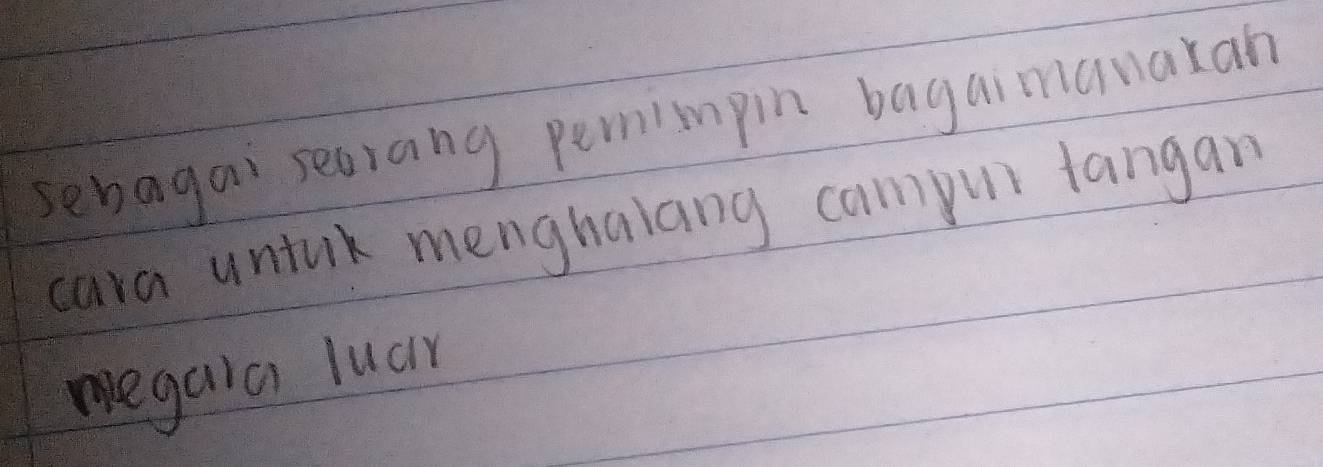 sebagai seorang pemimpin bagaimanakah
cara untuk menghalang campur tangan
negara luar